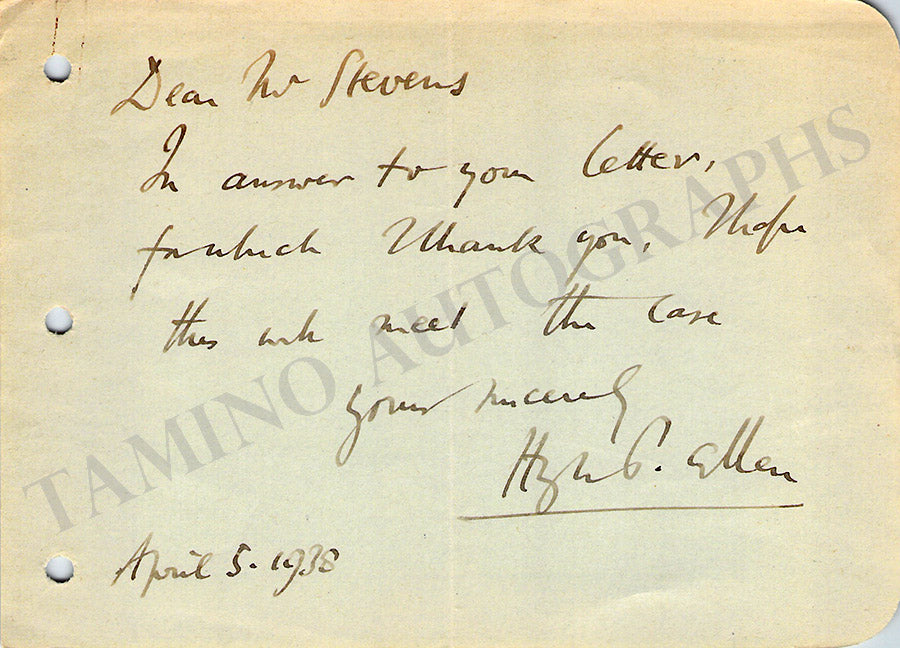 Dear Mr Stevens
In answer to your letter,
for which I thank you, I hope
this will meet the case
yours sincerely
Hugh P. Allen
April 5. 1938
TAMINO AUTOGRAPHS